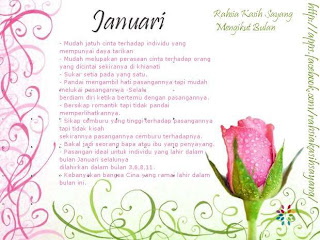 Januari
Rahsia Kasih Sayang
Mengikut Bulan
- Mudah jatuh cinta terhadap individu yang
mempunyai daya tarikan
- Mudah melupakan perasaan cinta terhadap orang
yang dicintai sekiranya di khianati
- Sukar setia pada yang satu,
- Pandai mengambil hati pasangannya tapi mudah
melukai pasangannya -Selalu
berdiam diri ketika bertemu dengan pasangannya.
- Bersikap romantik tapi tidak pandai
memperlihatkannya.
- Sikap cemburu yang tinggi terhadap pasangannya
tapi tidak kisah
sekiranya pasangannya cemburu terhadapnya.
- Bakal jadi seorang bapa atau ibu yang penyayang.
- Pasangan ideal untuk individu yang lahir dalam
bulan Januari selalunya
dilahirkan dalam bulan
- Kebanyakan bangsa Cina yang ramai lahir dalam
bulan ini.